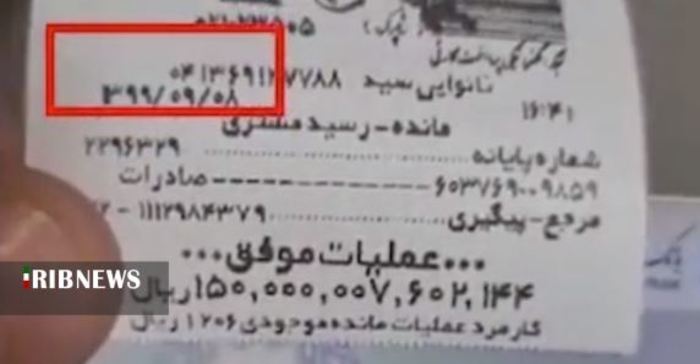 ۰۲۱-۲۳۵۰۵
نانوایی سید ۰۴۱۳۶۹۱۲۷۷۸۸
۱۶:۴۱ ۱۳۹۹/۰۹/۰۸
مانده-رسید مشتری
شماره پایانه ۲۲۹۶۳۲۹
۶۰۳۷۶۹۰۰۹۸۵۹ صادرات
مرجع-پیگیری ۱۱۱۲۹۸۴۳۷۹ -
...عملیات موفق...
۱۵۰,۰۰۰,۰۰۷,۶۰۲,۱۴۴ریال
کارمزد عملیات مانده موجودی ۱۲۰۶ ریال
IRIBNEWS